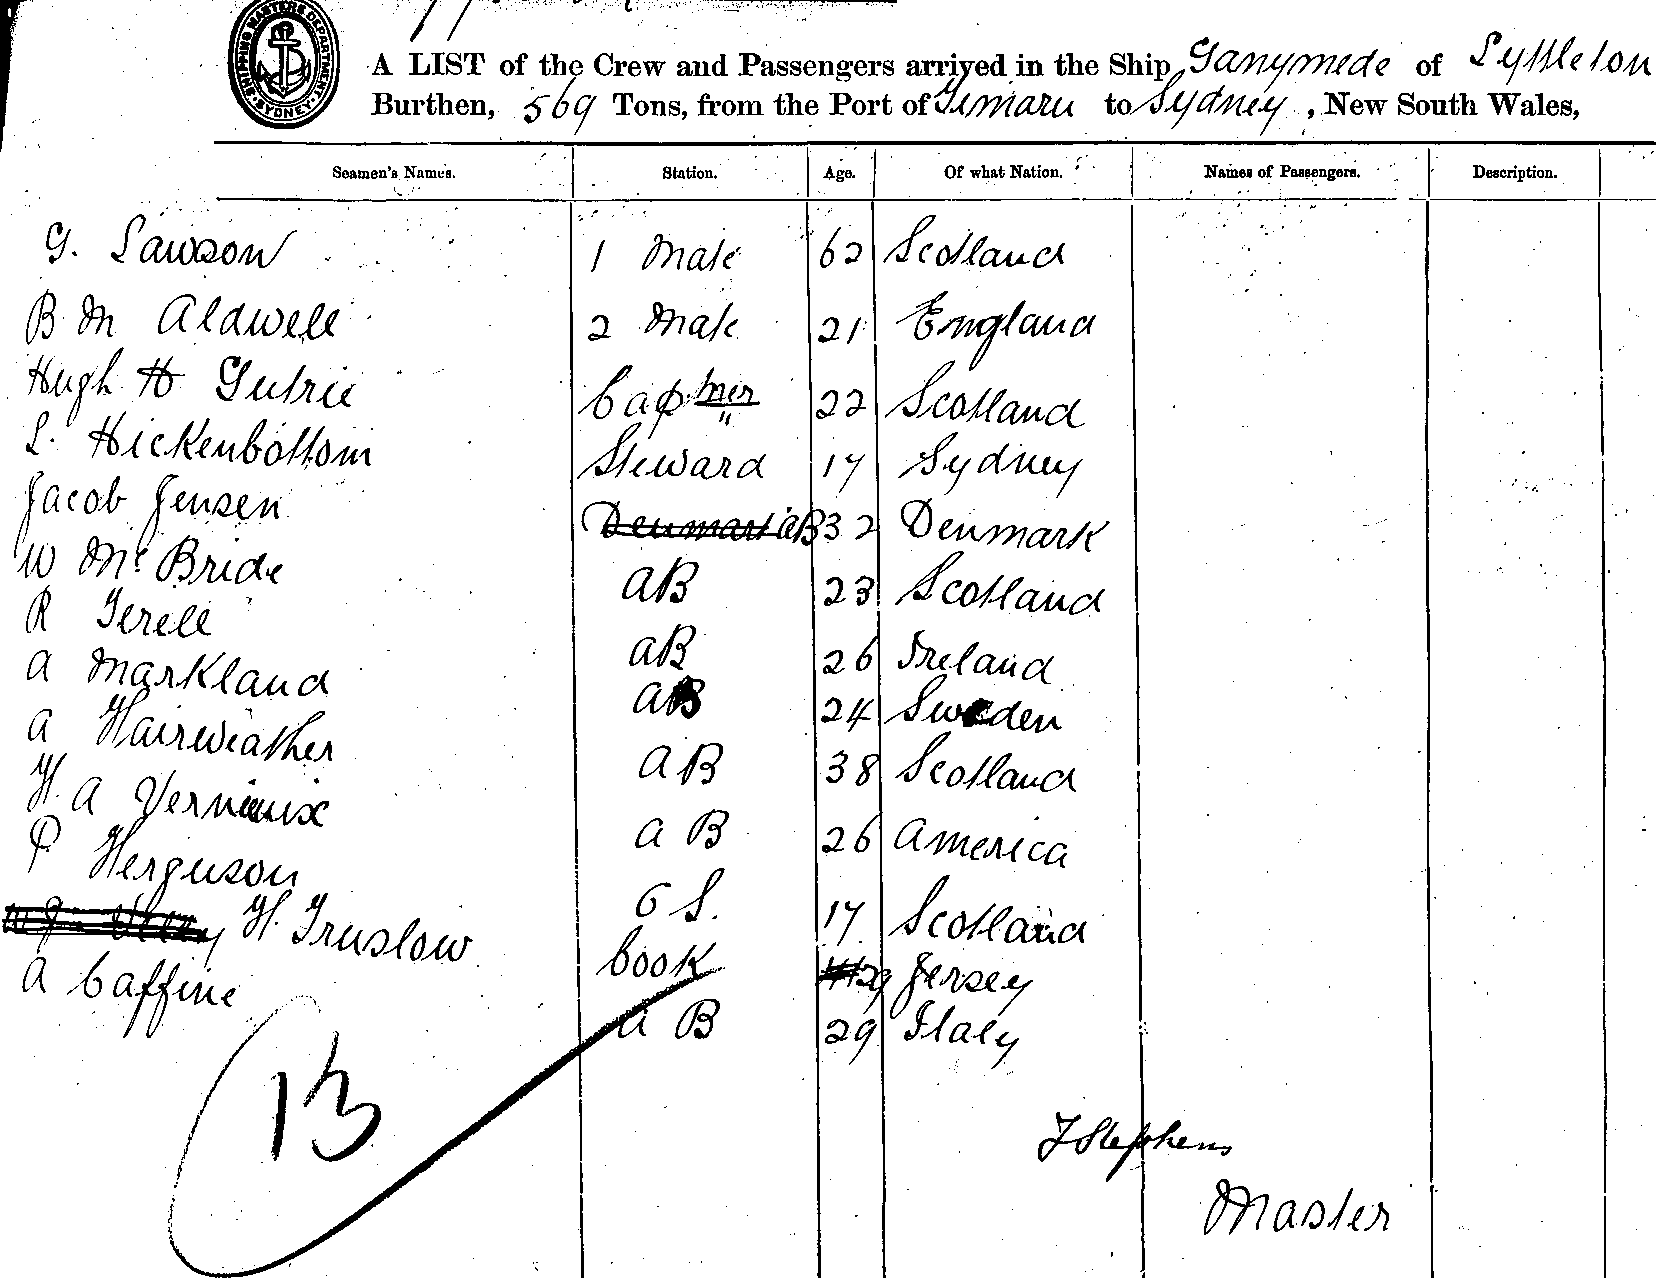 SHIPPING MASTERS DEPARTMENT SYDNEY
A LIST of the Crew and Passengers arrived in the Ship Ganymede of Lyttleton
Burthen, 569 Tons, from the Port of Timaru to Sydney, New South Wales,
Seamen's Names. Station. Age. Of what Nation. Names of Passengers. Description.
G. Lawson 1 Mate 62 Scotland
B M Aldwell 2 Mate 21 England
Hugh H Gutrie Cap mer 22 Scotland
L. Hickenbottom Steward 17 Sydney
Jacob Jensen Denmark AB 32 Denmark
W McBride AB 23 Scotland
R Terell AB 26 Ireland
A Markland AB 24 Sweden
A Fairweather AB 38 Scotland
F. A Vernieux A B 26 America
P Ferguson O S. 17 Scotland
H. Truslow Cook 29 Jersey
A Caffine A B 29 Italy
13
J Stephens
Master